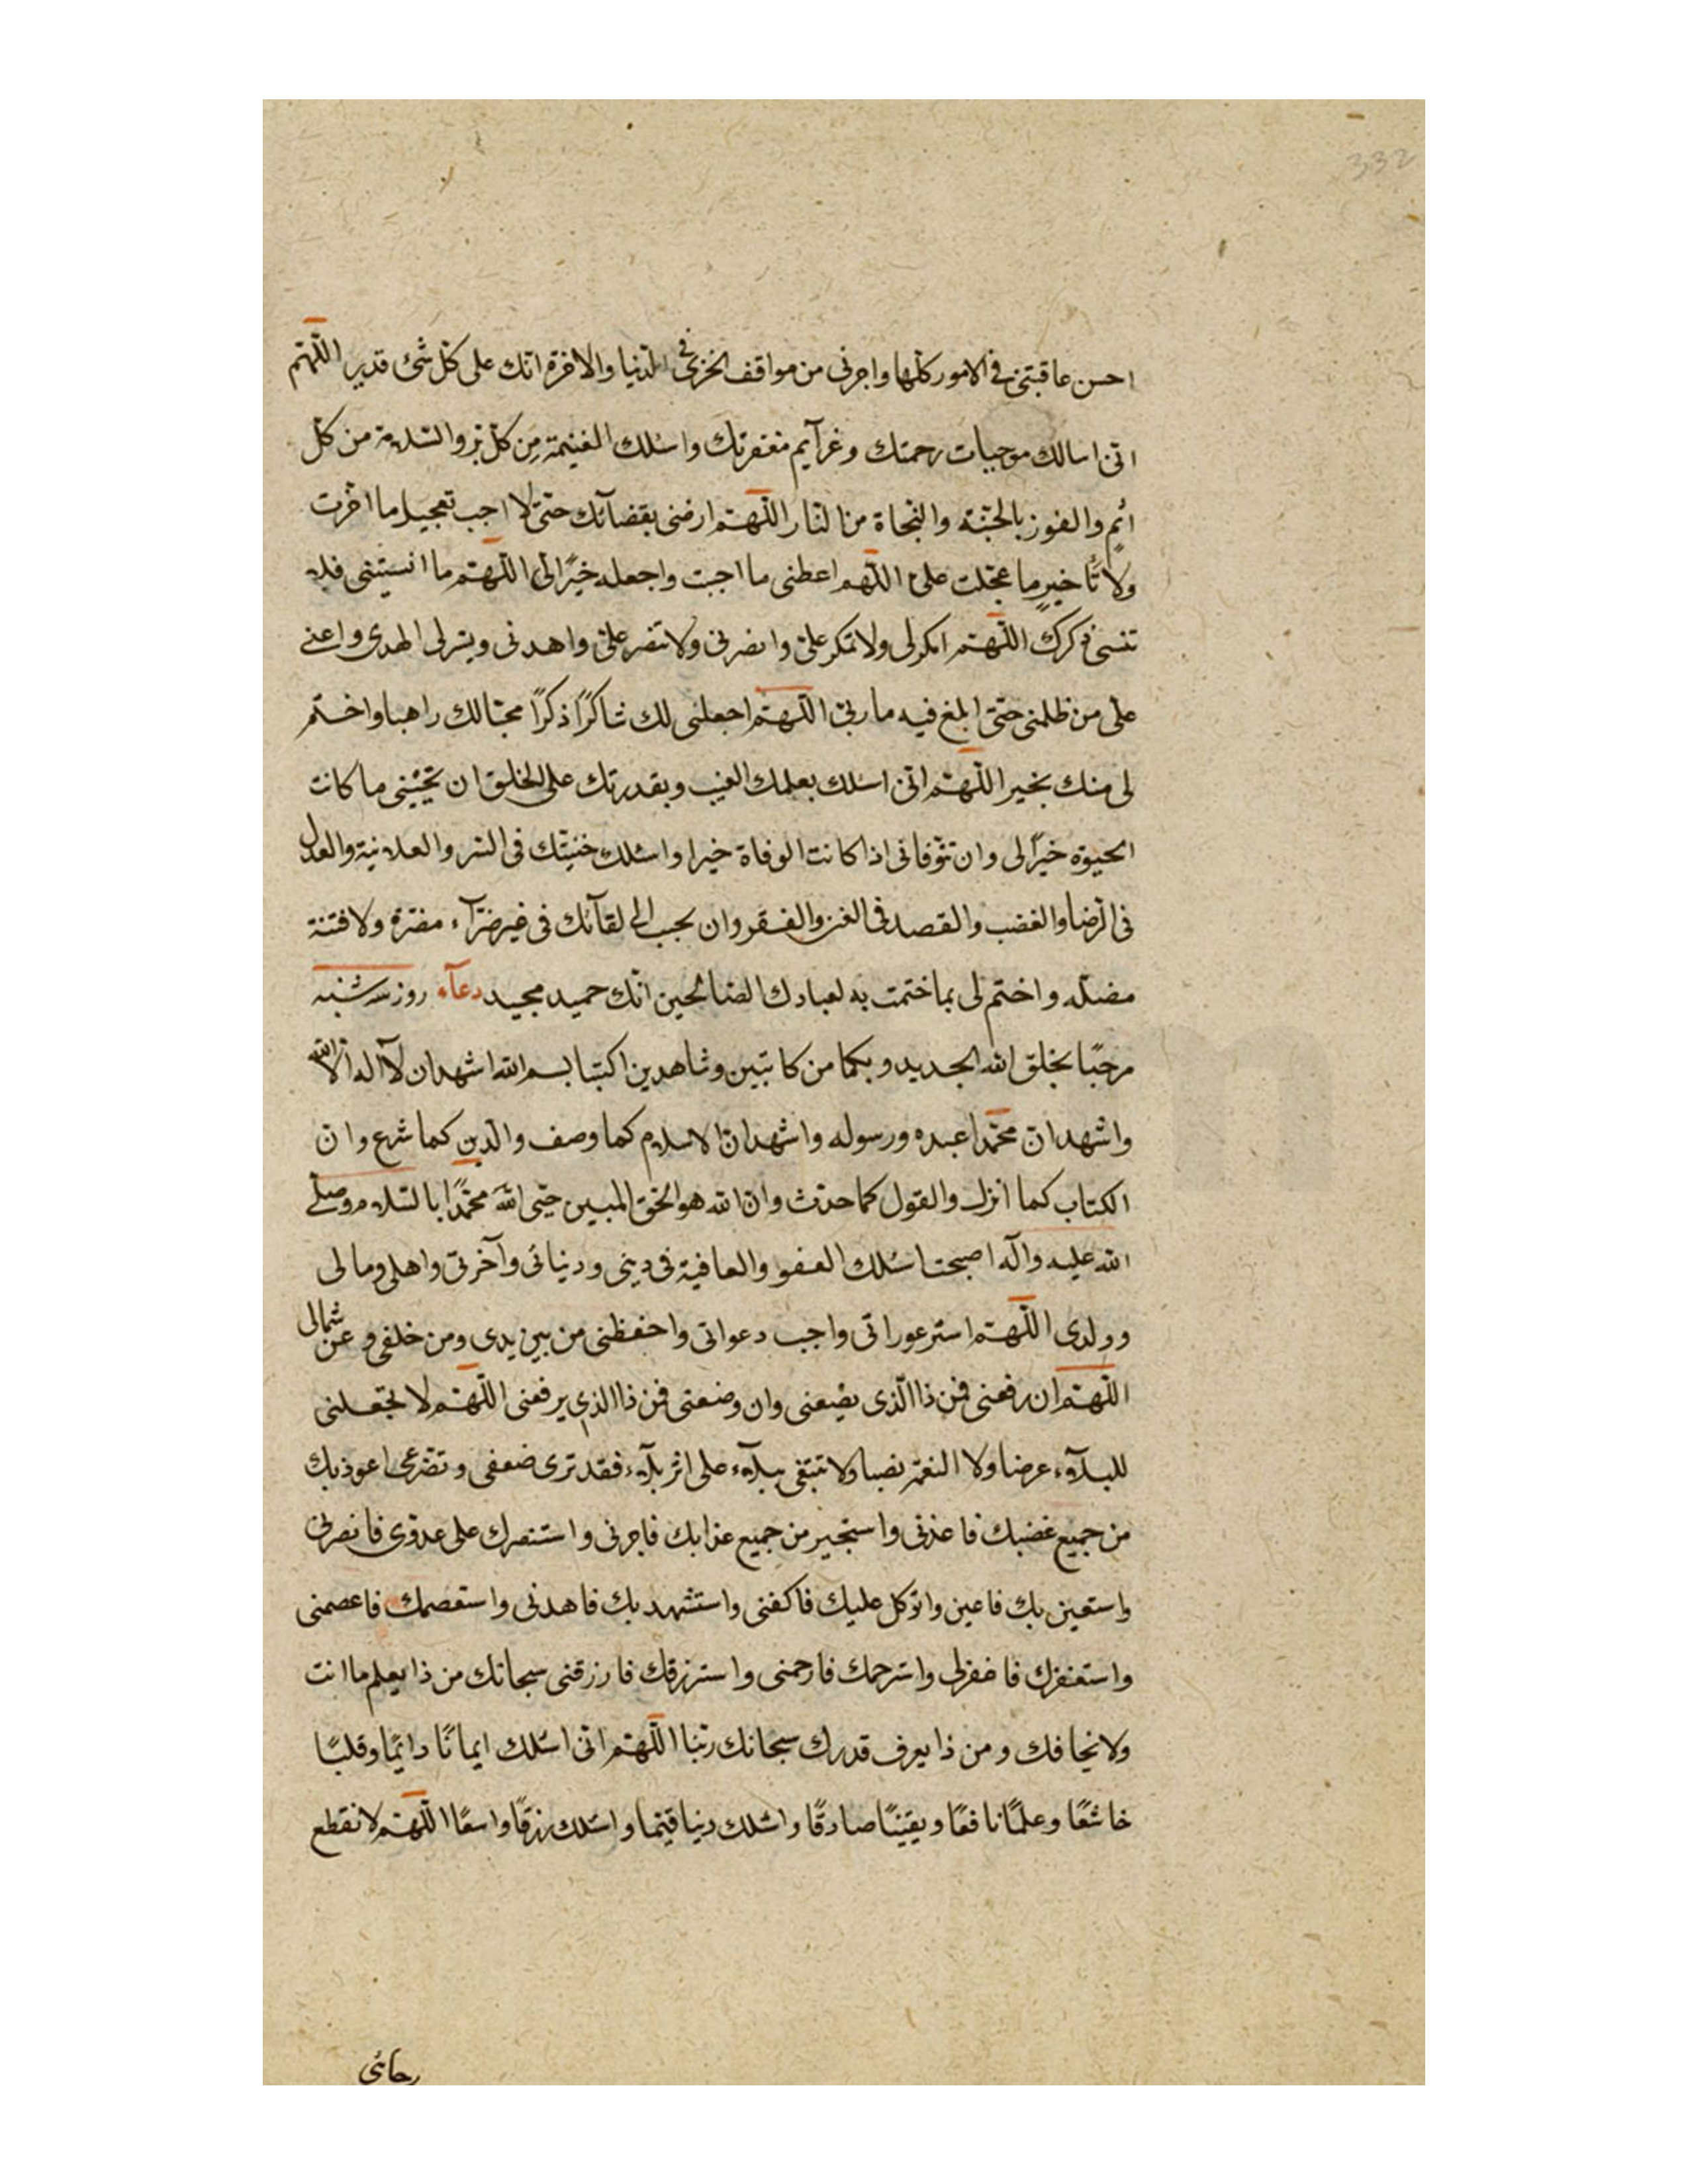 332
احسن عاقبتی فی الامور كلها واجرنی من مواقف الخزی فی الدنیا والاخرة انك علی كل شیء قدیر اللهم
انی اسالك موجبات رحمتك وعزآیم مغفرتك واسئلك الغنیمة من كل بر والسلامة من كل
اثم والفوز بالجنة والنجاة من النار اللهم ارضنی بقضآئك حتی لا احب تعجیل ما اخرت
ولا تأخیر ما عجلت علی اللهم اعطنی ما احببت واجعله خیرًا لی اللهم ما انسیتنی فلا
تنسی ذكرك اللهم امكر لی ولا تمكر علی وانصرنی ولا تنصر علی واهدنی ویسر لی الهدی واعنی
علی من ظلمنی حتی ابلغ فیه ماربی اللهم اجعلنی لك شاكرًا ذكرًا محبا لك راهبا واختم
لی منك بخیر اللهم انی اسئلك بعلمك الغیب وبقدرتك علی الخلق ان تحیینی ما كانت
الحیوة خیرًا لی وان توفانی اذا كانت الوفاة خیرا واسئلك خشیتك فی السر والعلانیة والعدل
فی الرضا والغضب والقصد فی الغنی والفقر وان تحبب الی لقآئك فی غیر ضرآء مضرة ولا فتنة
مضلة واختم لی بما ختمت به لعبادك الصالحین انك حمید مجید دعآء روز سه شنبه
مرحبًا بخلق الله الجدید وبكما من كاتبین وشاهدین اكتبا بسم الله اشهد ان لآ اله الا الله
واشهد ان محمدا عبده ورسوله واشهد ان الاسلام كما وصف والدین كما شرع وان
الكتاب كما انزل والقول كما حدث وان الله هو الحق المبین حیی الله محمدًا بالسلام وصلی
الله علیه وآله اصبحت اسئلك العفو والعافیة فی دینی ودنیائی وآخرتی واهلی ومالی
وولدی اللهم استر عوراتی واجب دعواتی واحفظنی من بین یدی ومن خلفی وعن شمالی
اللهم ان رفعنی فمن ذا الذی یضیعنی وان وضعتنی فمن ذا الذی یرفعنی اللهم لا تجعلنی
للبلآء عرضا ولا النعمة نصبا ولا تتبغی ببلآء علی اثر بلآء فقد تری ضعفی وتضرعی اعوذ بك
من جمیع غضبك فاعذنی واستجیر من جمیع عذابك فاجرنی واستنصرك علی عدوی فانصرنی
واستعین بك فاعین واتوكل علیك فاكفنی واستشهد بك فاهدنی واستعصمك فاعصمنی
واستغفرك فاغفرلی واسترحمك فارحمنی واسترزقك فارزقنی سبحانك من ذا یعلم ما انت
ولا یخافك ومن ذا یعرف قدرك سبحانك ربنا اللهم انی اسئلك ایمانًا دائمًا وقلبًا
خاشعًا وعلمًا نافعًا ویقینًا صادقًا واسئلك دینا قیما واسئلك رزقًا واسعًا اللهم لا تقطع
رجائی